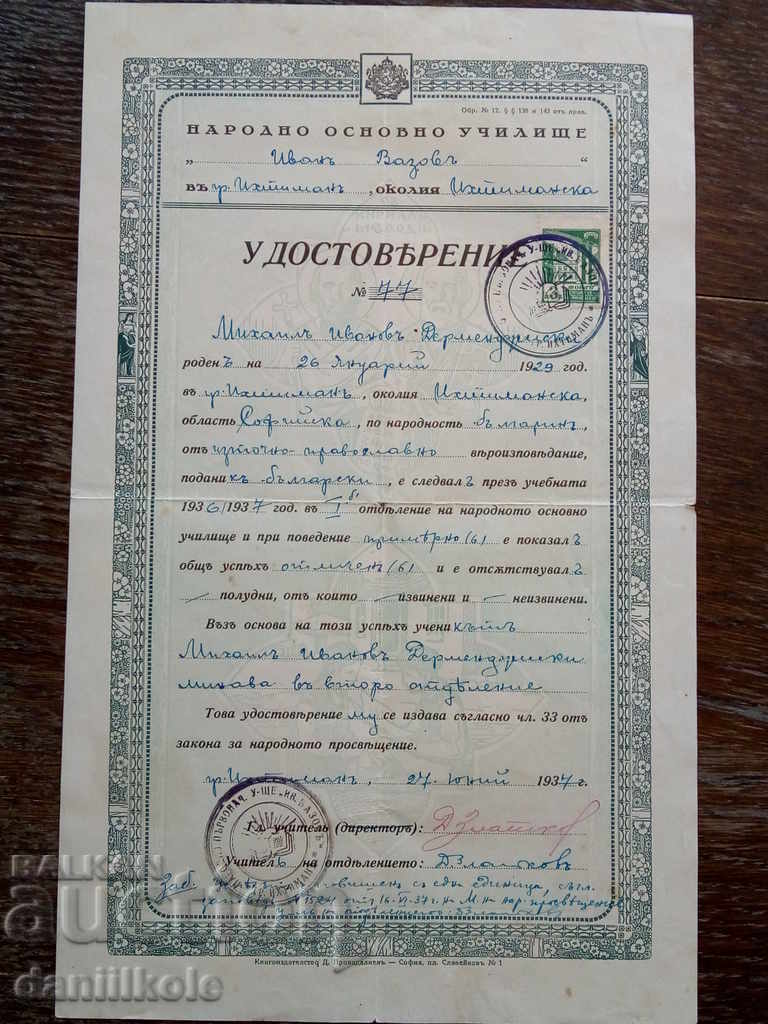 Обр. № 12. §§ 138 и 143 отъ прав.
НАРОДНО ОСНОВНО УЧИЛИЩЕ
„ Иванъ Вазовъ “
въ гр. Ихтиманъ, околия Ихтиманска
УДОСТОВѢРЕНИЕ
№ 77
Михаилъ Ивановъ Дермендjиски
роденъ на 26 Януарий 1929 год.
въ гр. Ихтиманъ, околия Ихтиманска,
область Софийска, по народность българинъ,
отъ източно-православно вѣроизповѣдание,
поданикъ български, е следвалъ презъ учебната
1936/1937 год. въ I б отдѣление на народното основно
училище и при поведение примѣрно (6) е показалъ
общъ успѣхъ отличенъ (6) и е отсѫтствувалъ
— полудни, отъ които — извинени и — неизвинени.
Възъ основа на този успѣхъ ученикътъ
Михаилъ Ивановъ Дермендjиски
минава въ второ отдѣление
Това удостовѣрение му се издава съгласно чл. 33 отъ
закона за народното просвѣщение.
гр. Ихтиманъ, 27 юний 1937 г.
Гл. учитель (директоръ): ДЗлатков
Учитель на отдѣлението: ДЗлатковъ
Заб. съ една единица, съгл.
№ 1524 отъ 16.VI.37. на М. на нар. просвѣщение
ПЪРВОНАЧ. У-ЩЕ „ИВ. ВАЗОВЪ“
ГР. ИХТИМАНЪ
Книгоиздателство Д. Провадалиевъ — София, пл. Славейковъ № 1
BALKAN
auction
daniilkole